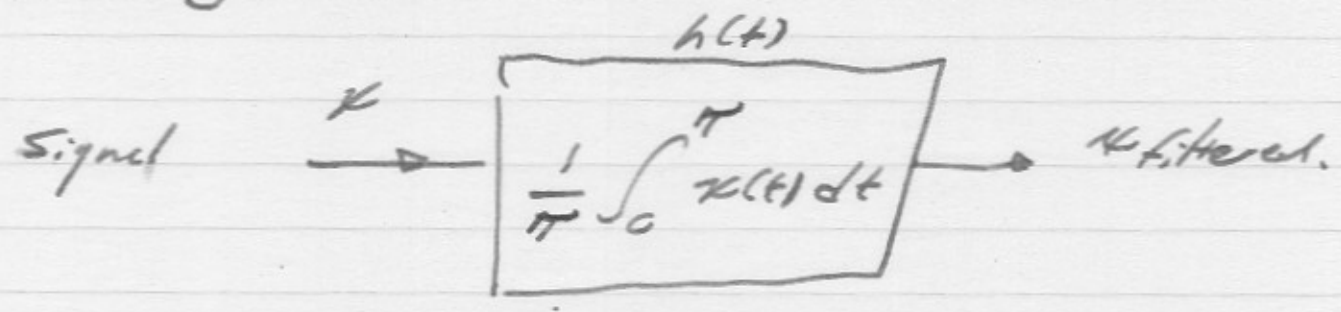 h(t)
Signal x 1/π ∫₀^π x(t) dt x filtered.